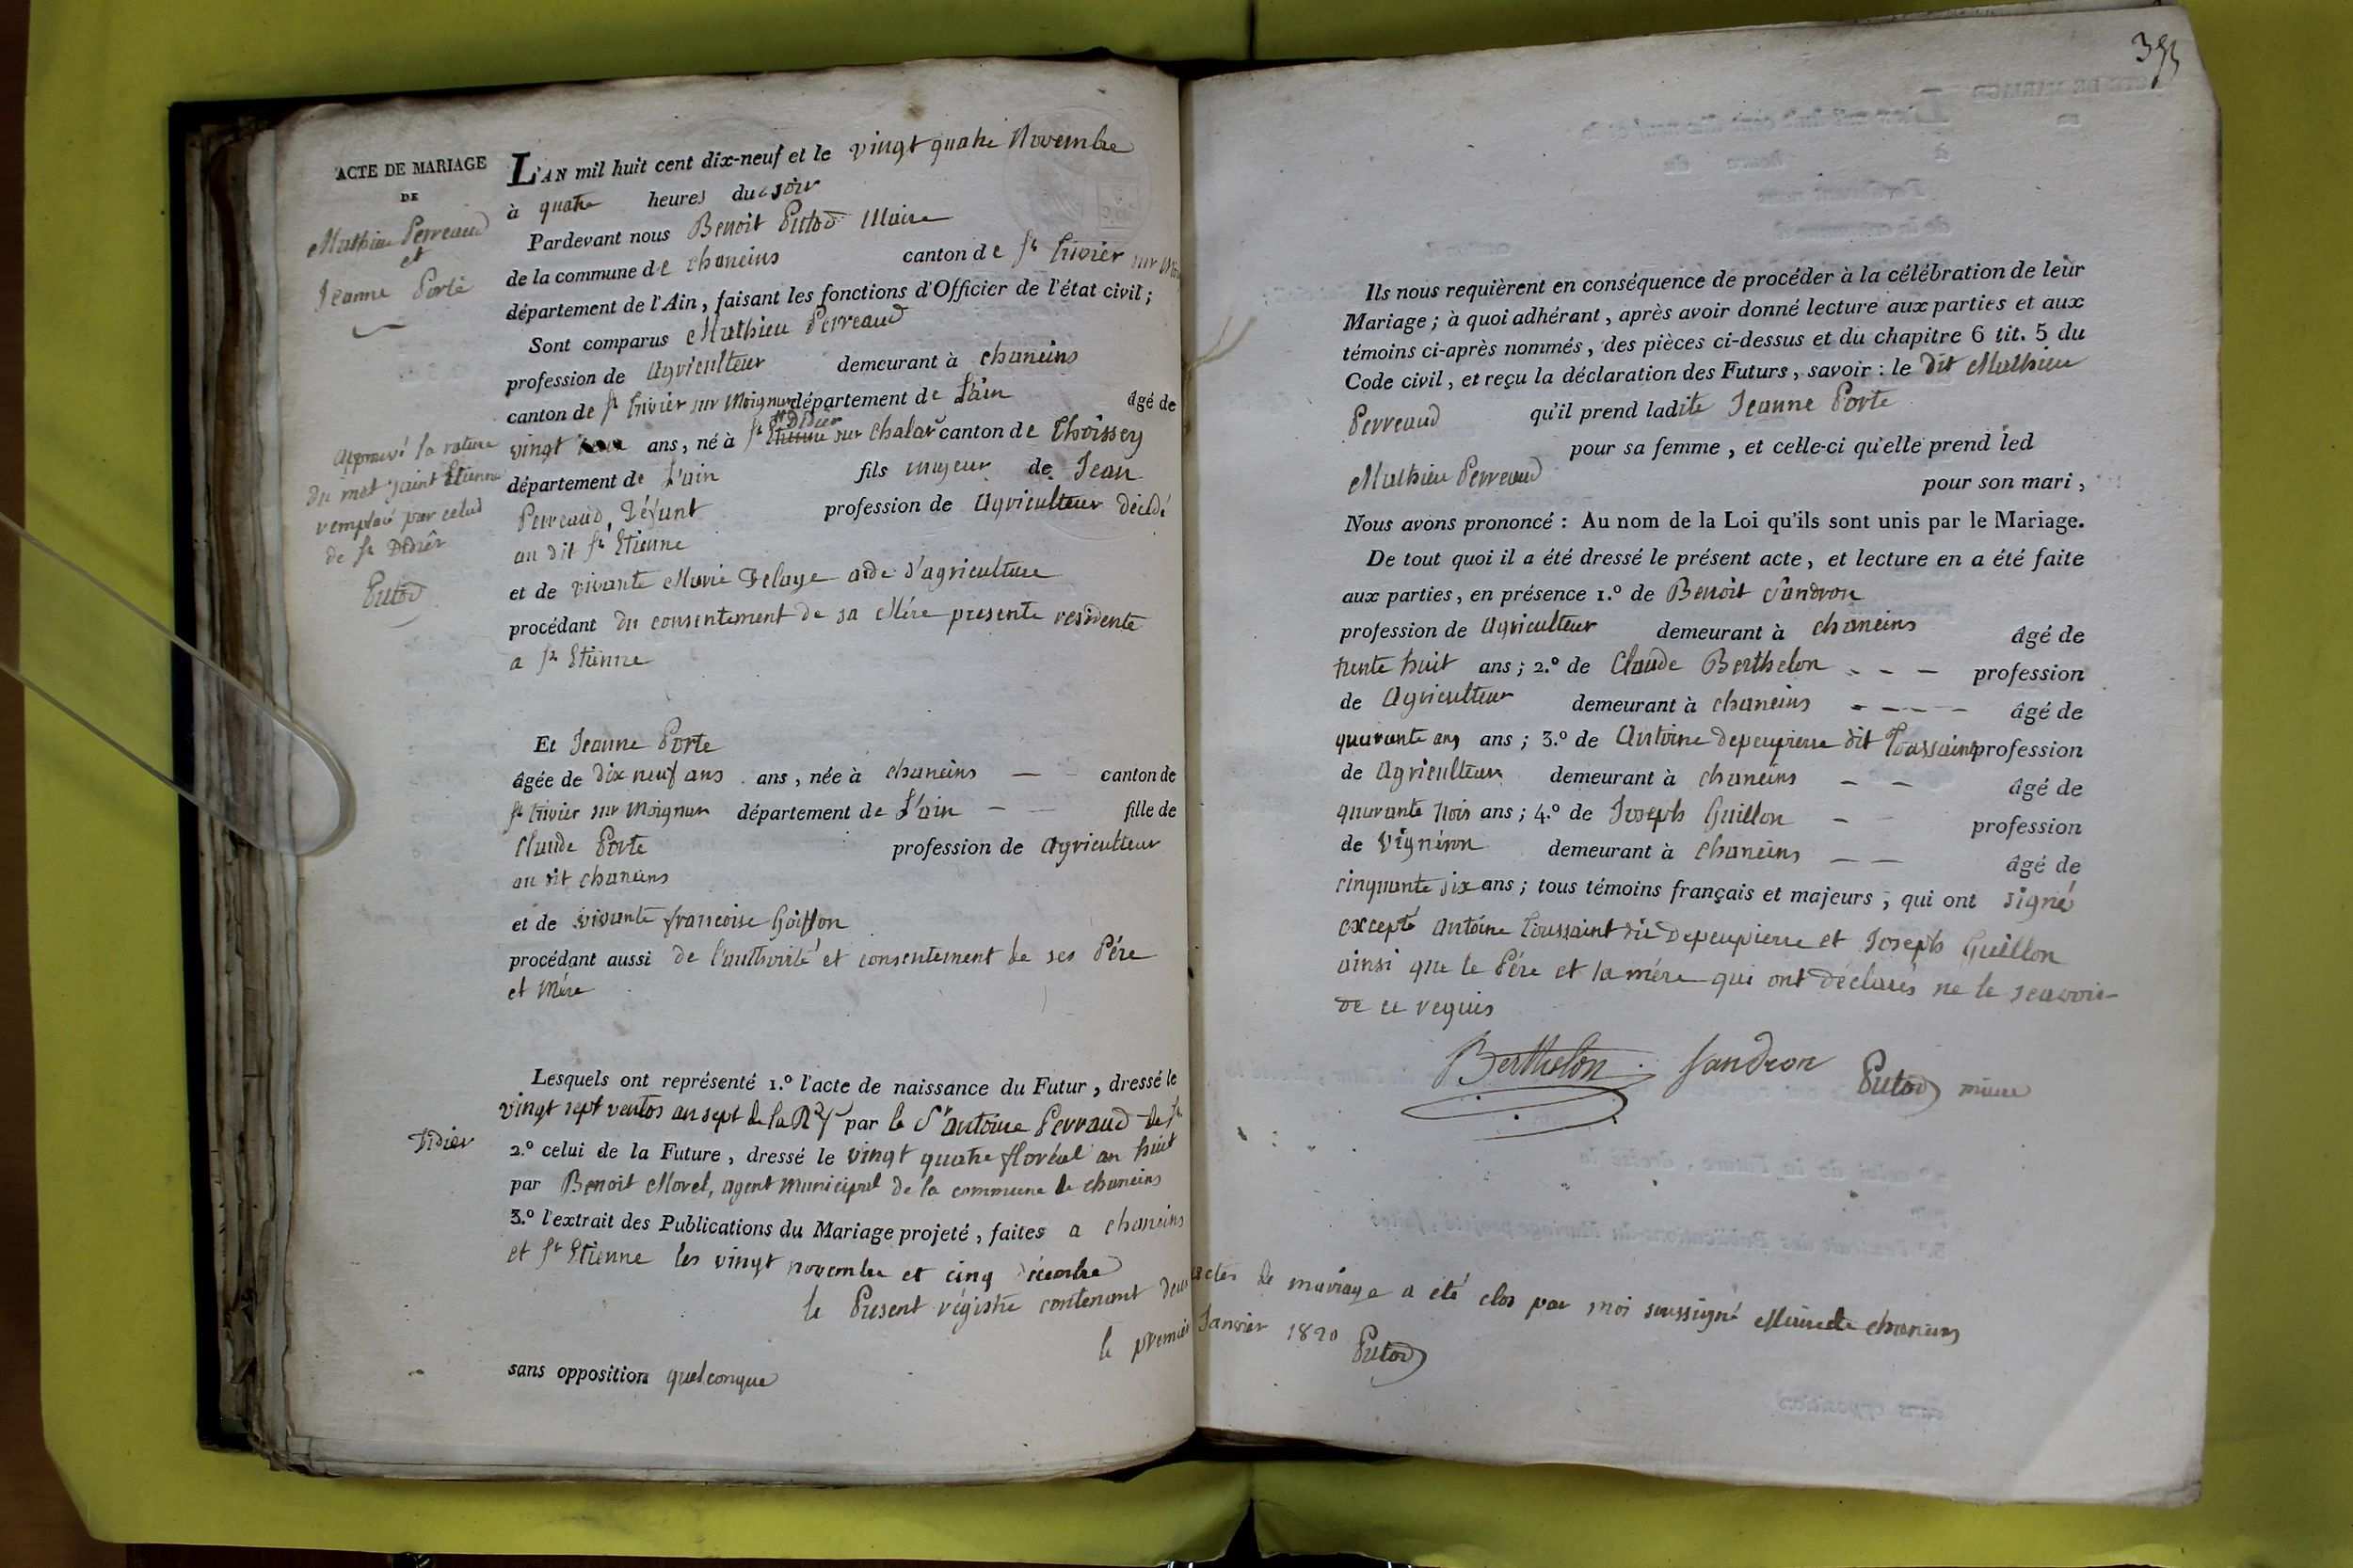 ACTE DE MARIAGE
DE
Mathieu Perreaud
et
Jeanne Porte
approuvé la rature
du mot saint Etienne
remplacé par celui
de St Didier
Putod
Didier
L'AN mil huit cent dix-neuf et le vingt quatre Novembre
à quatre heures du soir
Pardevant nous Benoit Putod Maire
de la commune de chaneins canton de St trivier sur
département de l'Ain, faisant les fonctions d'Officier de l'état civil;
Sont comparus Mathieu Perreaud
profession de agriculteur demeurant à chaneins
canton de St trivier sur Moignans département de L'ain âgé de
St Didier
vingt ans, né à St Etienne sur chalar canton de thoissey
département de L'ain fils majeur de Jean
Perreaud, Défunt profession de agriculteur décédé
au dit St Etienne
et de vivante Marie Delaye aide d'agriculture
procédant du consentement de sa Mére presente residente
a St Etienne
Et Jeanne Porte
âgée de dix neuf ans ans, née à chaneins — canton de
St trivier sur Moignans département de L'ain — fille de
Claude Porte profession de agriculteur
au dit chaneins
et de vivante francoise Goiffon
procédant aussi de l'authorité et consentement de ses Pére
et Mére
Lesquels ont représenté 1.º l'acte de naissance du Futur, dressé le
vingt sept ventos an sept de la par le Sr antoine Perraud de St
2.º celui de la Future, dressé le vingt quatre floréal an huit
par Benoit Morel, agent municipal de la commune de chaneins
3.º l'extrait des Publications du Mariage projeté, faites a chaneins
et St Etienne les vingt novembre et cinq décembre
sans opposition quelconque
Ils nous requièrent en conséquence de procéder à la célébration de leur
Mariage; à quoi adhérant, après avoir donné lecture aux parties et aux
témoins ci-après nommés, des pièces ci-dessus et du chapitre 6 tit. 5 du
Code civil, et reçu la déclaration des Futurs, savoir: le dit Mathieu
Perreaud qu'il prend ladite Jeanne Porte
pour sa femme, et celle-ci qu'elle prend led
Mathieu Perreaud pour son mari,
Nous avons prononcé: Au nom de la Loi qu'ils sont unis par le Mariage.
De tout quoi il a été dressé le présent acte, et lecture en a été faite
aux parties, en présence 1.º de Benoit Sandron
profession de agriculteur demeurant à chaneins âgé de
trente huit ans; 2.º de Claude Berthelon - - — profession
de agriculteur demeurant à chaneins - - - - âgé de
quarante ans ans; 3.º de antoine depeupierre dit Toussaint profession
de agriculteur demeurant à chaneins — — âgé de
quarante trois ans; 4.º de Joseph Guillon - - profession
de vignéron demeurant à chaneins — — âgé de
cinquante six ans; tous témoins français et majeurs, qui ont signé
excepté antoine toussaint dit depeupierre et Joseph Guillon
ainsi que le Pére et la mére qui ont déclarés ne le scavoir
de ce requis
Berthelon Sandron Putod maire
le Present régistre contenant deux actes de mariage a été clos par moi soussigné Maire de chaneins
le premier Janvier 1820 Putod